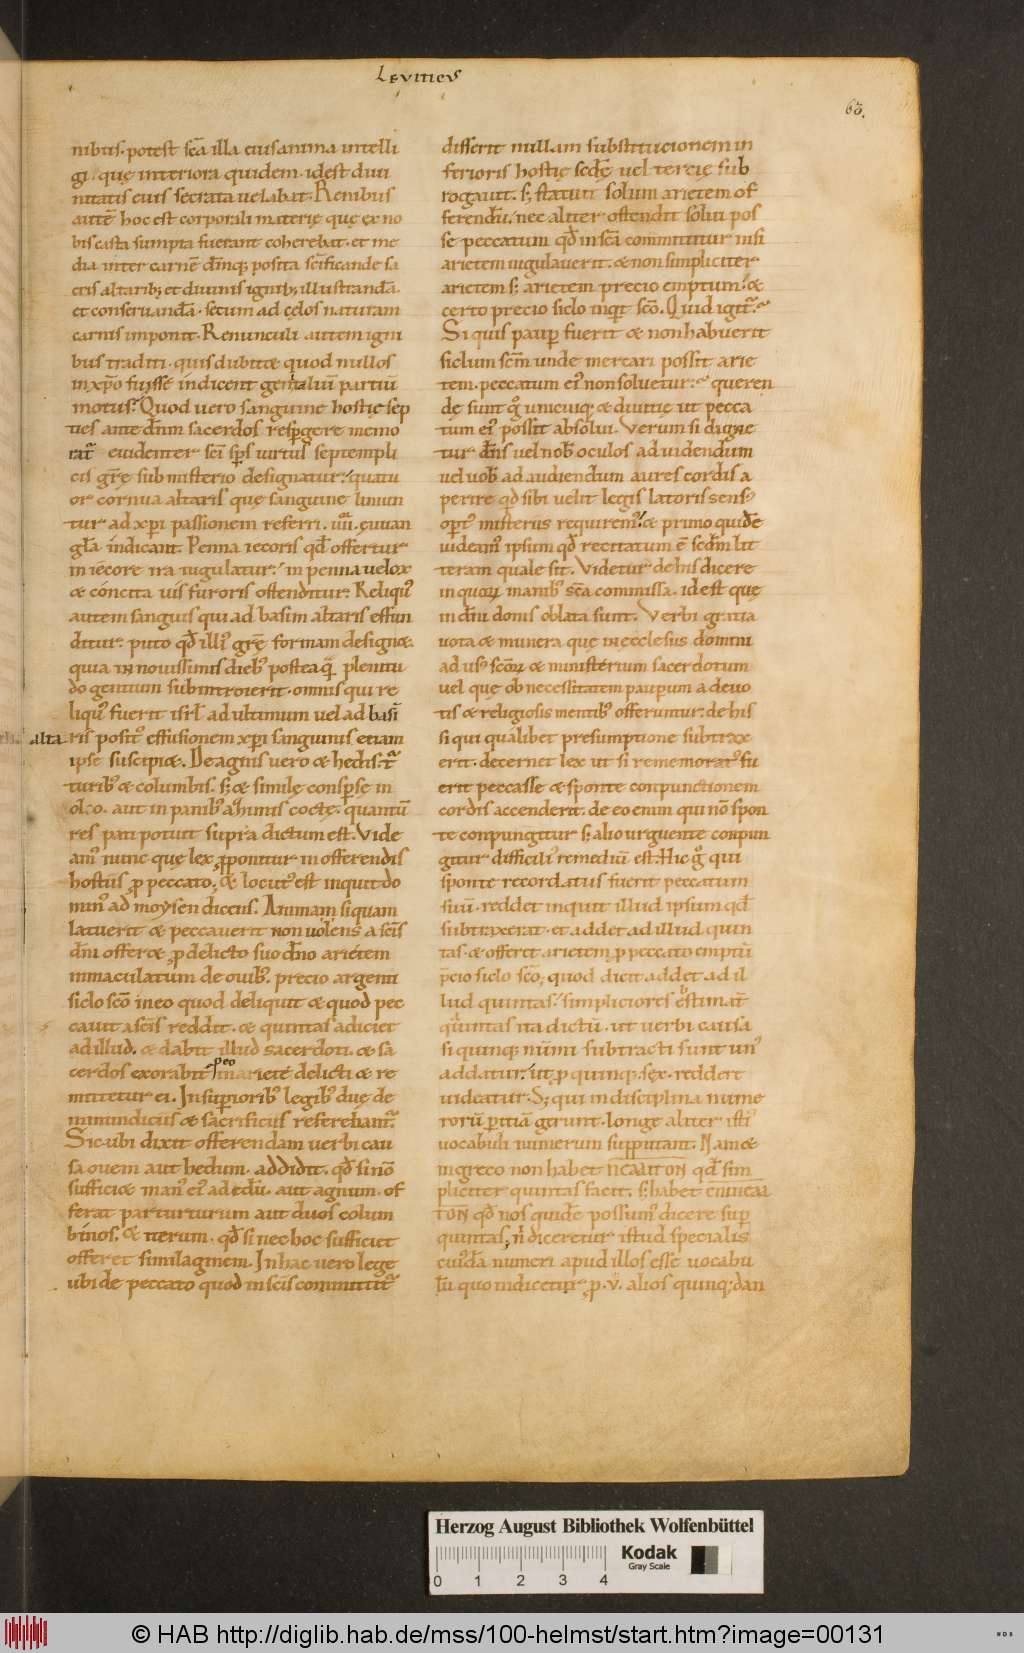 Leviticus
63.
nibus. potest scā illa eius anima intelli
gi. quę interiora quidem. id est divi
nitatis eius secreta velabat. Renibus
autē hoc est corporali materię quę ex no
bis casta sumpta fuerant coherebat. et me
dia inter carnē dmq; posita scificande sa
cris altarib; et divinis ignib; illustrandā.
et conservandā. secum ad cęlos naturam
carnis imponit. Renunculi autem igni
bus traditi. quis dubitet quod nullos
in xp̄o fuisse indicent genitaliū partiū
motus? Quod vero sanguine hostię sep
ties ante dn̄m sacerdos respgere memo
rat᷑ evidenter sc̄i sp̄s virtus septempli
cis gr̄ę sub misterio designatur. quatu
or cornua altaris quę sanguine linun
tur ad xp̄i passionem referri. iiii. ęuuan
głia indicant. Penna iecoris qd̄ offertur
in iecore ira iugulatur. in penna velox
et concita vis furoris ostenditur. Reliqꝰ
autem sanguis qui ad basim altaris effun
ditur. puto qd̄ illiꝰ grę formam designet.
quia in novissimis diebꝰ postea quā plenitu
do gentium subintroierit. omnis qui re
liquꝰ fuerit isrł ad ultimum vel ad basī
alta ris positꝰ effusionem xp̄i sanguinis etiam
ipse suscipiet. De agnis vero et hedis. t᷑
turibꝰ et columbis. s; et simile conspse in
oleo. aut in panibꝰ azimis coctę. quantū
res pati potuit supra dictum est. Vide
amꝰ nunc quę lex pponitur in offerendis
hostiis p peccato. Et locutꝰ est inquit do
minꝰ ad moysen dicens. Animam si quam
latuerit et peccaverit non volens a scis
dn̄i offeret p delicto suo dn̄o arietem
inmaculatum de ovibꝰ. precio argenti
siclo scō in eo quod deliquit et quod pec
cavit a scis reddit. et quintas adiciet
ad illud. et dabit illud sacerdoti. et sa
cerdos exorabit p eo in ariete delicti et re
mittetur ei. In supioribꝰ legibꝰ duę de
minundicus et sacrificiis referebant᷑.
Sic ubi dixit offerendam verbi cau
sa ovem aut hedum. addidit. qd̄ si nō
sufficiet manꝰ eiꝰ ad edū. aut agnum. of
ferat par turturum aut duos colum
binos. Et iterum. qd̄ si nec hoc sufficiet
offeret similaginem. In hac vero lege
ubi de peccato quod in scis committit᷑
disserit nullam substitutionem in
ferioris hostię scdę vel tercię sub
rogavit. s; statuit solum arietem of
ferendū. nec aliter ostendit solvi pos
se peccatum qd̄ in scā committitur nisi
arietem iugulaverit. et non simpliciter
arietem s; arietem precio emptum. et
certo precio siclo inqt scō. Quid igit᷑?
Si quis paup fuerit et non habuerit
siclum scm̄ unde mercari possit arie
tem. peccatum eiꝰ non solvetur? queren
dę sunt g̊ unicuiq; et divitię ut pecca
tum eiꝰ possit absolvi. Verum si digne
tur dn̄s vel nobꝰ oculos ad videndum
vel vobꝰ ad audiendum aures cordis a
perire qd sibi velit legis latoris sensꝰ
optꝰ misteriis requiremꝰ. et primo quidē
videamꝰ ipsum qd̄ recitatum ē scdm̄ lit
teram quale sit. Videtur de his dicere
in quorum manibꝰ scā commissa. id est quę
in dn̄i donis oblata sunt. Verbi gratia
vota et munera quę in ecclesiis domini
ad usꝰ scorum et ministerium sacerdotum
vel quę ob necessitatem paupum a devo
tis et religiosis mentibꝰ offeruntur. de his
si qui qualibet presumptione subtrax
erit. decernit lex ut si rememoratꝰ fu
erit peccasse et sponte conpunctionem
cordis accenderit. de eo enim qui nō spon
te conpungitur s; alio urguente conpun
gitur difficiliꝰ remediū est. Hic g̊ qui
sponte recordatus fuerit peccatum
suū. reddet inquit illud ipsum qd̄
subtraxerat. et addet ad illud quin
tas. et offeret arietem p peccato emptū
pcio siclo scō. quod dicit addet ad il
lud quintas. simpliciores ęstimat᷑
quintas ita dictū. ut verbi causa
si quinq; nūmi subtracti sunt unꝰ
addatur. ut p quinq; sex reddere
videatur. S; qui in disciplina nume
rorū pitiā gerunt. longe aliter istiꝰ
vocabuli numerum supputant. Nam et
in greco non habet
pliciter quintas facit. s; habet
qd̄ nos quidē possumꝰ dicere sup
quintas; n̄ diceretur istud specialis
cuiꝰdā numeri apud illos esse vocabu
lū quo indicetur. p. v. alios quinq; dan
Herzog August Bibliothek Wolfenbüttel
0 1 2 3 4
Kodak
Gray Scale
© HAB http://diglib.hab.de/mss/100-helmst/start.htm?image=00131